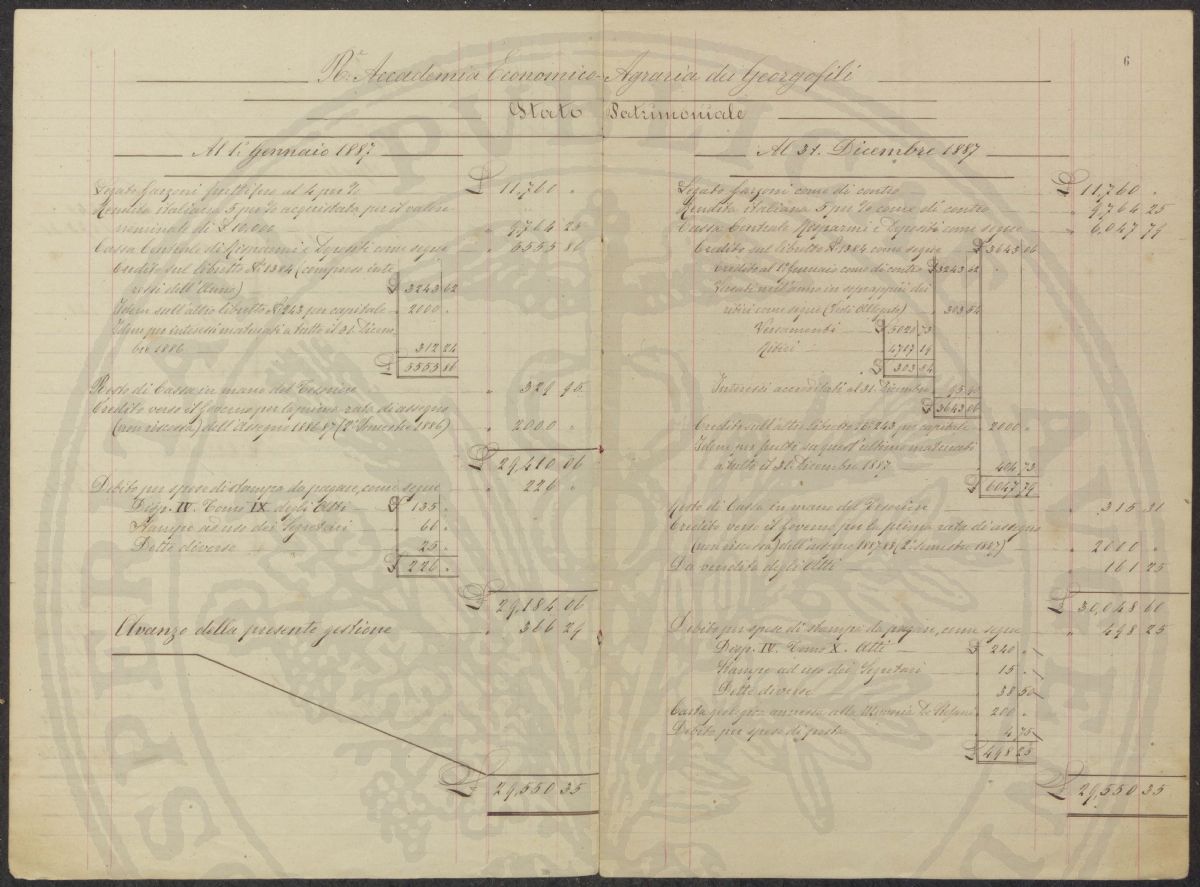 R.e Accademia Economico-Agraria dei Georgofili
6
Stato Patrimoniale
Al 1.o Gennaio 1887
Legato Garzoni fruttifero al 4 per % £ 11,760 "
Rendita italiana 5 per % acquistata per il valore
nominale di £ 10.000 " 9,764 25
Cassa Centrale di Risparmi e Depositi come segue " 5555 86
Credito sul libretto N.o 1384 (compresi inte
ressi dell'Anno) £ 3243 62
Idem sull'altro libretto N.o 243 per capitale " 2000 "
Idem per interessi maturati a tutto il 31 Dicem
bre 1886 " 312 24
£ 5555 86
Resto di Cassa in mano del Tesoriere " 329 95
Credito verso il Governo per la prima rata di assegno
(non riscossa) dell'Assegno 1886-87 (2.o Semestre 1886) " 2000 "
£ 29,410 06
Debito per spese di stampa da pagare, come segue " 226 "
Disp. IV. Tomo IX degli Atti £ 135 "
Stampe ad uso dei Segretari " 66 "
Dette diverse " 25 "
£ 226 "
£ 29,184 06
Avanzo della presente gestione " 366 29
£ 29,550 35
Al 31. Dicembre 1887
Legato Garzoni come di contro £ 11,760 "
Rendita italiana 5 per % come di contro " 9,764 25
Cassa Centrale Risparmi e Depositi come segue " 6,047 79
Credito sul libretto N.o 1384 come segue £ 3643 06
Credito al 1.o Gennaio come di contro £ 3243 62
Versati nell'anno in soprappiù dei
ritiri come segue (Vedi Allegato) " 303 54
Versamenti £ 5020 73
Ritiri " 4717 19
£ 303 54
Interessi accreditati al 31. Dicembre " 95 90
£ 3643 06
Credito sull'altro libretto N.o 243 per capitale " 2000 "
Idem per frutti su quest'ultimo maturati
a tutto il 31 Dicembre 1887 " 404 73
£ 6047 79
Resto di Cassa in mano del Tesoriere " 315 31
Credito verso il Governo per la prima rata di assegno
(non riscossa) dell'assegno 1887-88 (2.o Semestre 1887) " 2000 "
Da vendita degli Atti " 161 25
£ 30,048 60
Debito per spese di stampa da pagare, come segue " 498 25
Disp. IV. Tomo X. Atti £ 240 "
Stampe ad uso dei Segretari " 15 "
Dette diverse " 38 50
Carta geologica annessa alla Memoria De Stefani " 200 "
Debito per spese di posta " 4,75
£ 498 25
£ 29,550 35